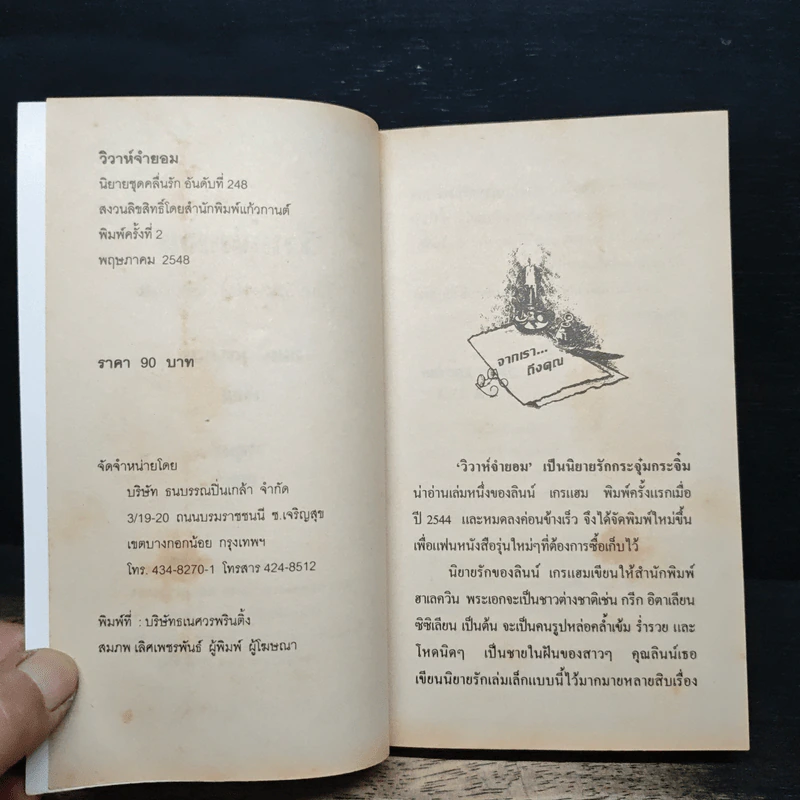 วิวาห์จำยอม
นิยายชุดคลื่นรัก อันดับที่ 248
สงวนลิขสิทธิ์โดยสำนักพิมพ์แก้วกานต์
พิมพ์ครั้งที่ 2
พฤษภาคม 2548
ราคา 90 บาท
จัดจำหน่ายโดย
บริษัท ธนบรรณปิ่นเกล้า จำกัด
3/19-20 ถนนบรมราชชนนี ซ.เจริญสุข
เขตบางกอกน้อย กรุงเทพฯ
โทร. 434-8270-1 โทรสาร 424-8512
พิมพ์ที่ : บริษัทธเนศวรพรินติ้ง
สมภพ เลิศเพชรพันธ์ ผู้พิมพ์ ผู้โฆษณา
จากเรา...
ถึงคุณ
'วิวาห์จำยอม' เป็นนิยายรักกระจุ๋มกระจิ๋ม
น่าอ่านเล่มหนึ่งของลินน์ เกรแฮม พิมพ์ครั้งแรกเมื่อ
ปี 2544 และหมดลงค่อนข้างเร็ว จึงได้จัดพิมพ์ใหม่ขึ้น
เพื่อแฟนหนังสือรุ่นใหม่ๆที่ต้องการซื้อเก็บไว้
นิยายรักของลินน์ เกรแฮมเขียนให้สำนักพิมพ์
ฮาเลควิน พระเอกจะเป็นชาวต่างชาติเช่น กรีก อิตาเลียน
ซิซิเลียน เป็นต้น จะเป็นคนรูปหล่อคล้ำเข้ม ร่ำรวย และ
โหดนิดๆ เป็นชายในฝันของสาวๆ คุณลินน์เธอ
เขียนนิยายรักเล่มเล็กแบบนี้ไว้มากมายหลายสิบเรื่อง